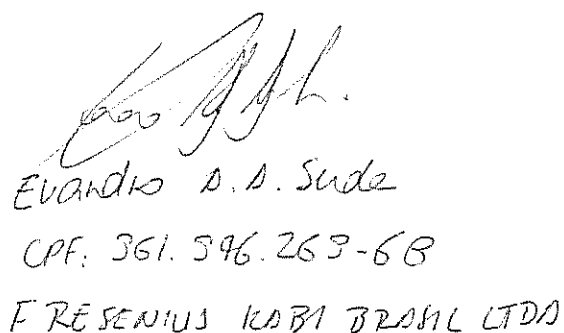 Evandro A. A. Suda
CPF: 361.396.269-68
FRESENIUS KABI BRASIL LTDA